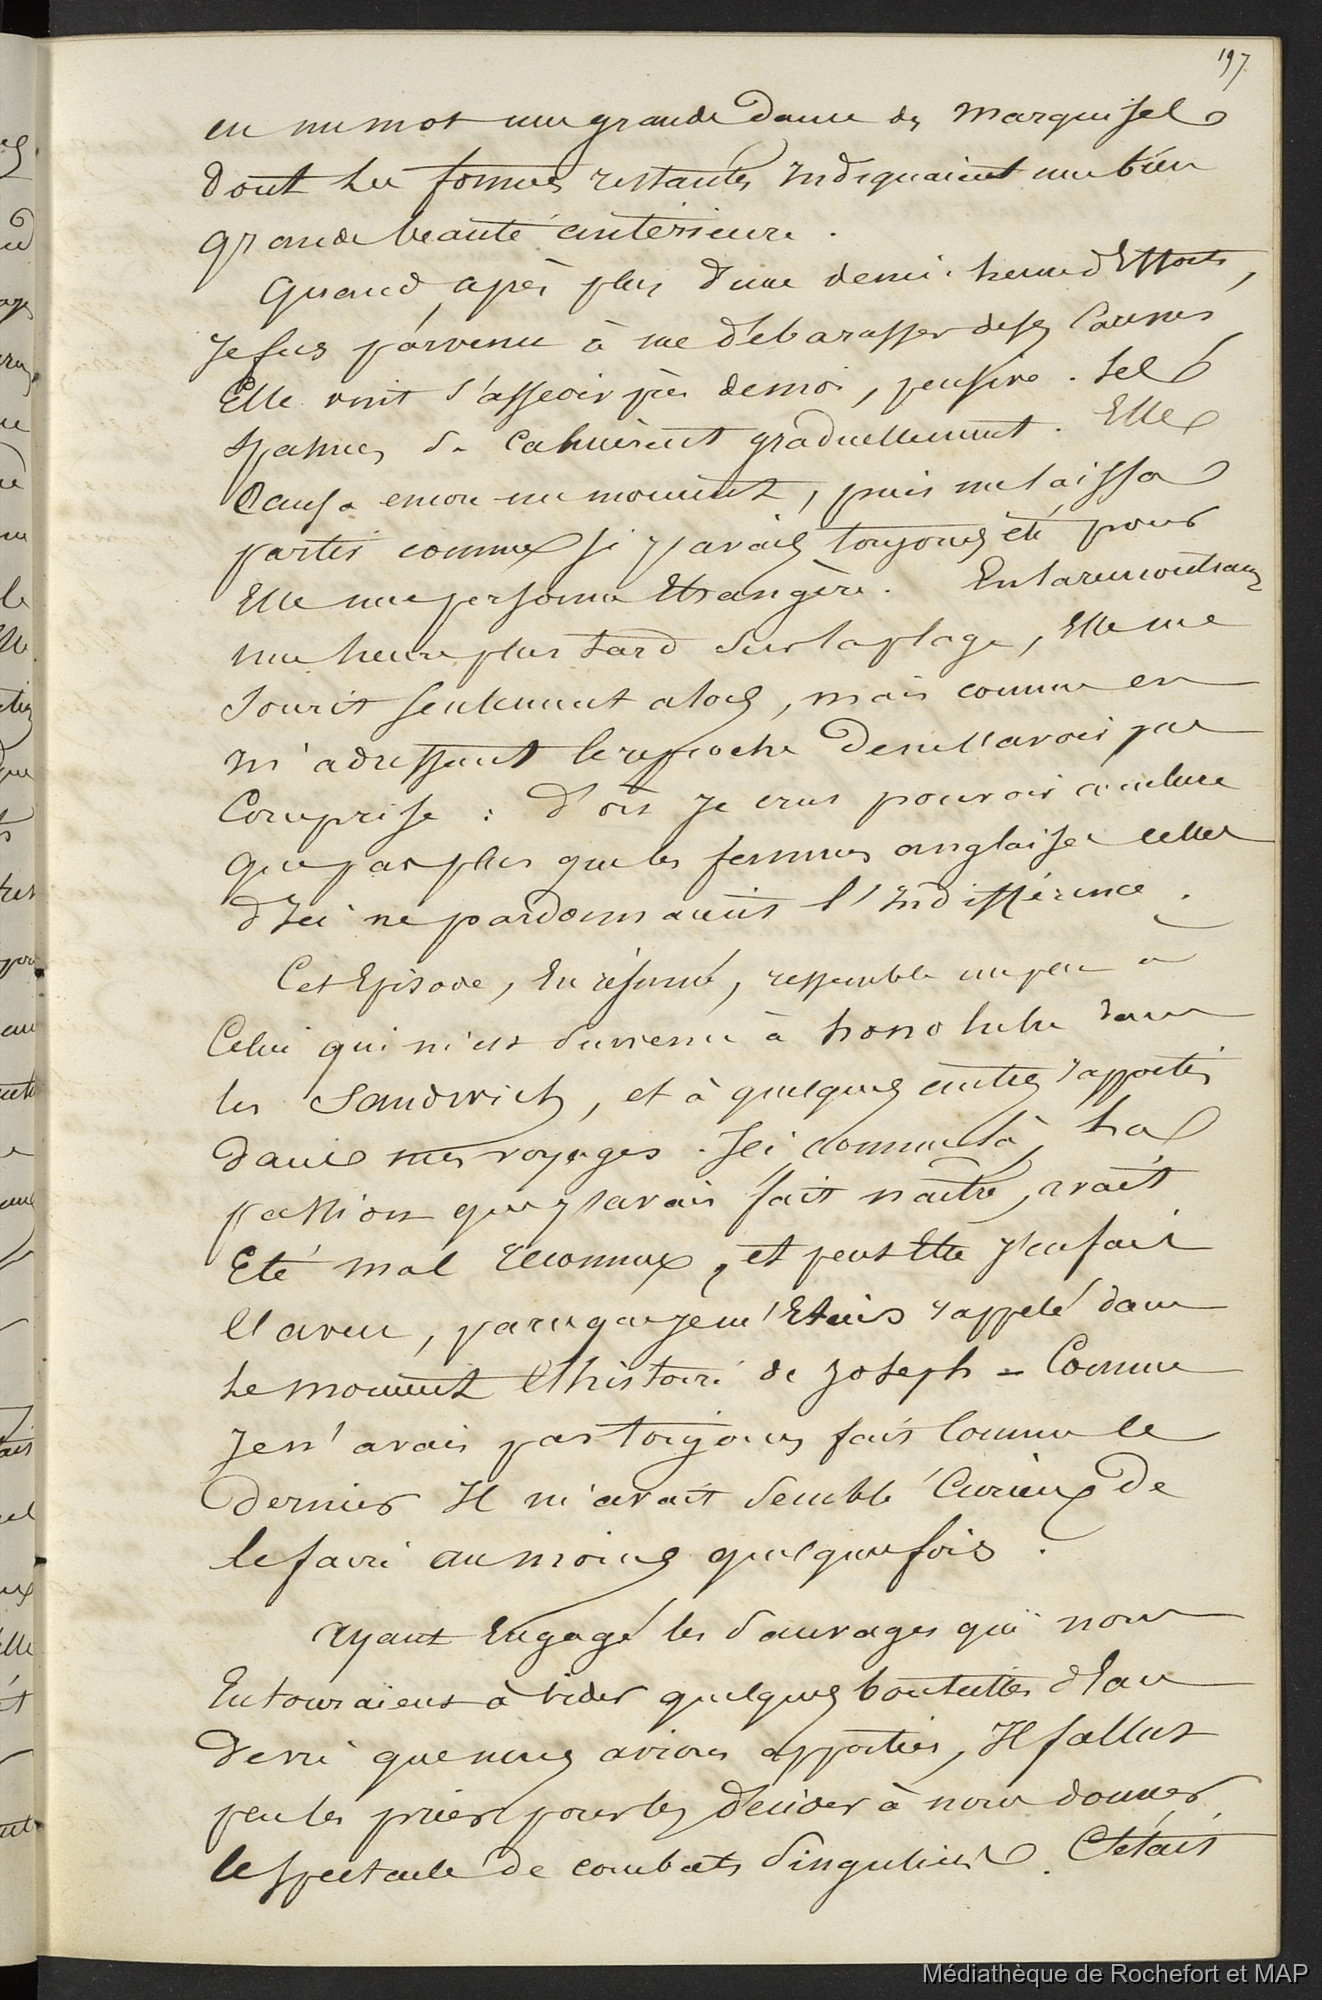 197
en un mot une grande dame des marquises
dont les formes restantes indiquaient une bien
grande beauté antérieure.
Quand, après plus d'une demi-heure d'Efforts,
Je fus parvenu à me débarasser de ses
Elle vint s'asseoir près de moi, pensive. Ses
spasmes se calmèrent graduellement. Elle
causa encore un moment, puis me laissa
partir comme si j'avais toujours été pour
Elle une personne Etrangère. En la rencontrant
une heure plus tard sur la plage, Elle me
sourit seulement alors, mais comme en
m'adressant le reproche de ne l'avoir pas
Comprise : d'où je crus pouvoir conclure
que pas plus que les femmes anglaises celles
d'Ici ne pardonnaient l'Indifférence.
Cet Episode, En résumé, ressemble un peu à
Celui qui m'est survenu à honolulu dans
les Sandwich, et à quelques autres rapportés
dans mes voyages. Ici comme là, la
passion que j'avais fait naître, avait
Eté mal reconnue, et peut Etre j'en fais
l'aveu, parceque je m'Etais rappelé dans
le moment l'histoire de Joseph = Comme
Je n'avais pas toujours fait comme le
dernier Il m'avait semblé Curieux de
le faire au moins quelquefois.
Ayant Engagé les sauvages qui nous
Entouraient à vider quelques bouteilles d'Eau
de vie que nous avions apportées, Il fallut
peu les prier pour les décider à nous donner
le spectacle de combats singuliers. C'était
Médiathèque de Rochefort et MAP